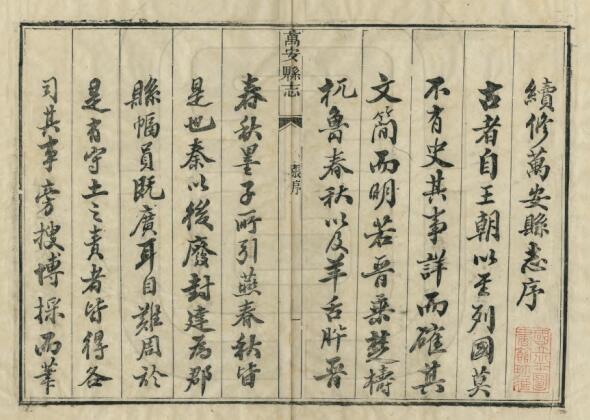 續修萬安縣志序
古者自王朝以至列國莫
不有史其事詳而確其
文簡而明若晉乘楚檮
杌魯春秋以及羊舌肸晉
萬安縣志
張序
一
春秋墨子所引燕春秋皆
是也秦以後廢封建為郡
縣幅員既廣耳目難周於
是有守土之責者皆得各
司其事旁搜博採而筆